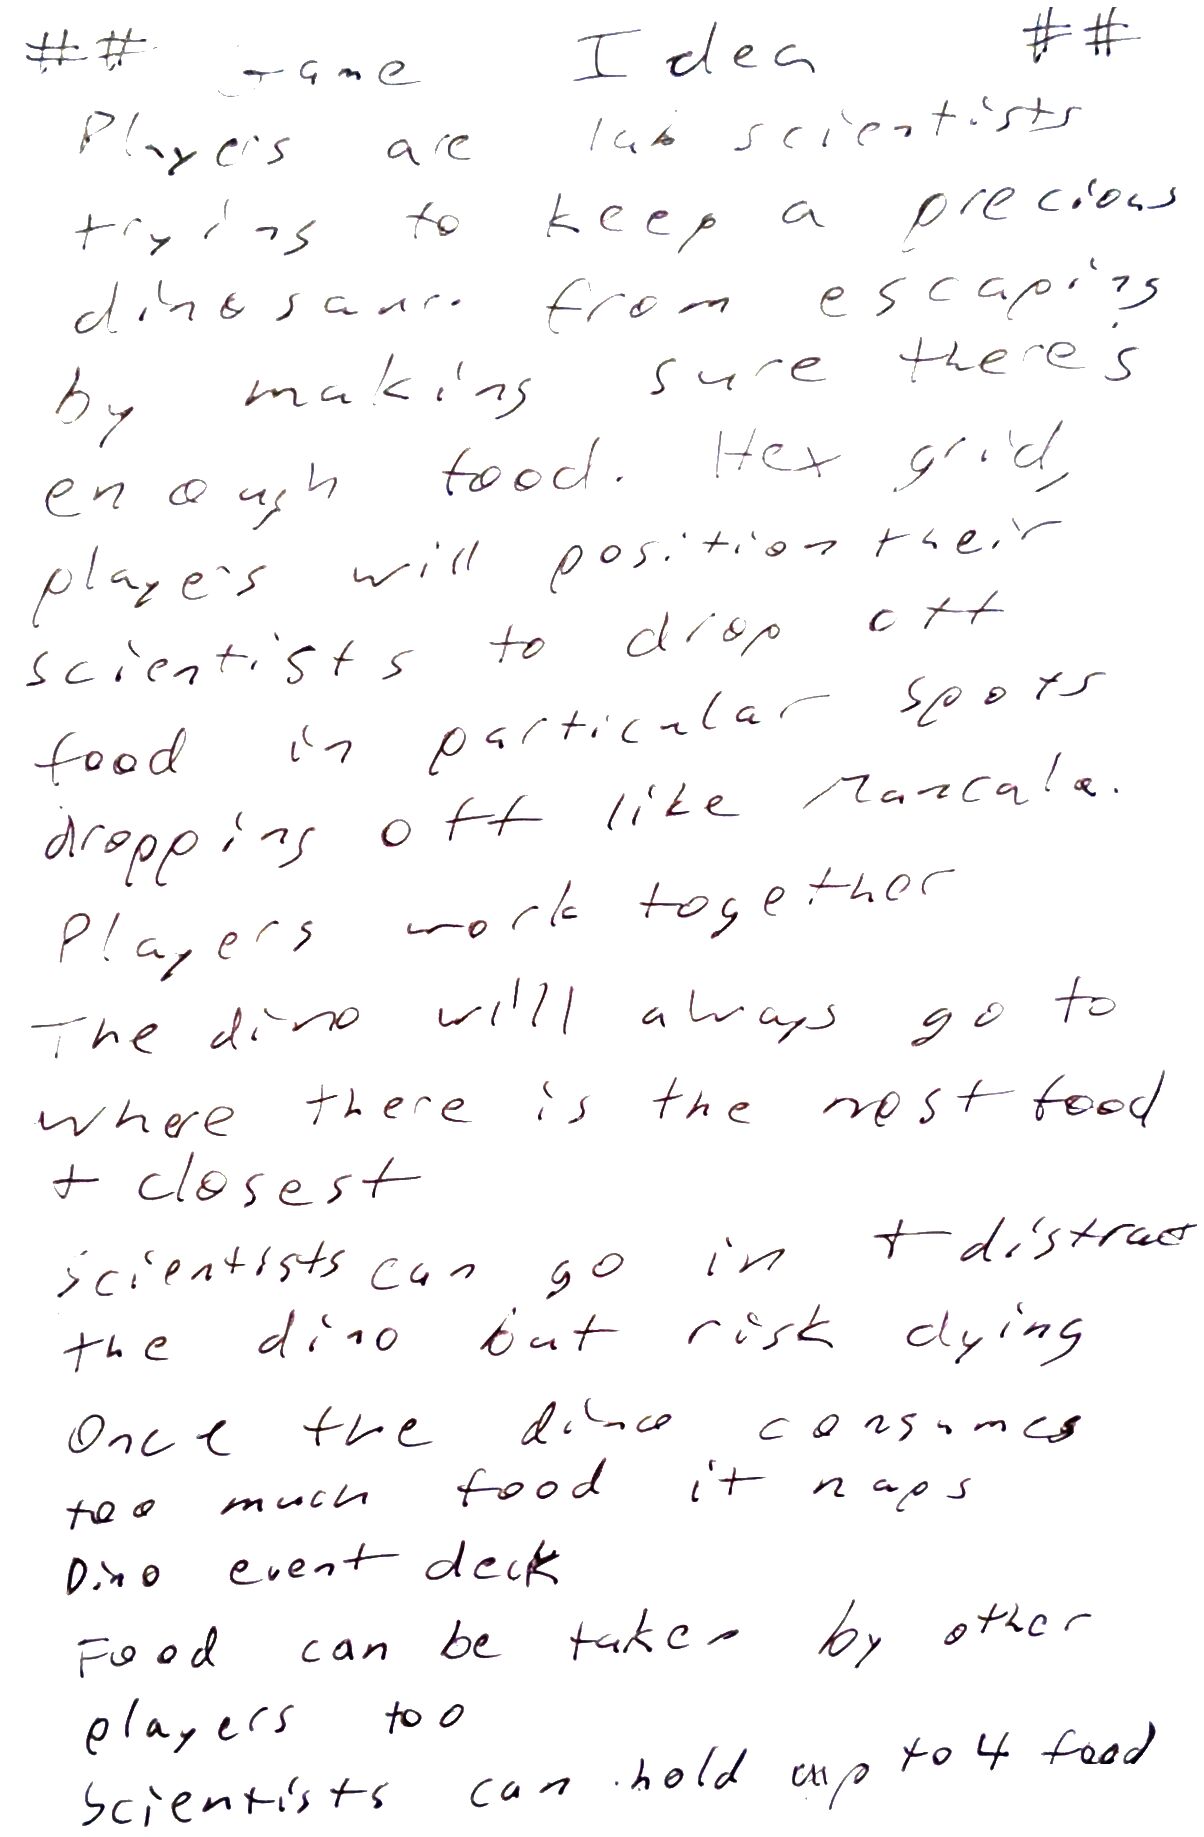 ## Game Idea ##
Players are lab scientists
trying to keep a precious
dinosaur from escaping
by making sure there's
enough food. Hex grid,
players will position their
scientists to drop off
food in particular spots
dropping off like Mancala.
Players work together
The dino will always go to
where there is the most food
+ closest
scientists can go in + distract
the dino but risk dying
Once the dino consumes
too much food it naps
Dino event deck
Food can be taken by other
players too
Scientists can hold up to 4 food